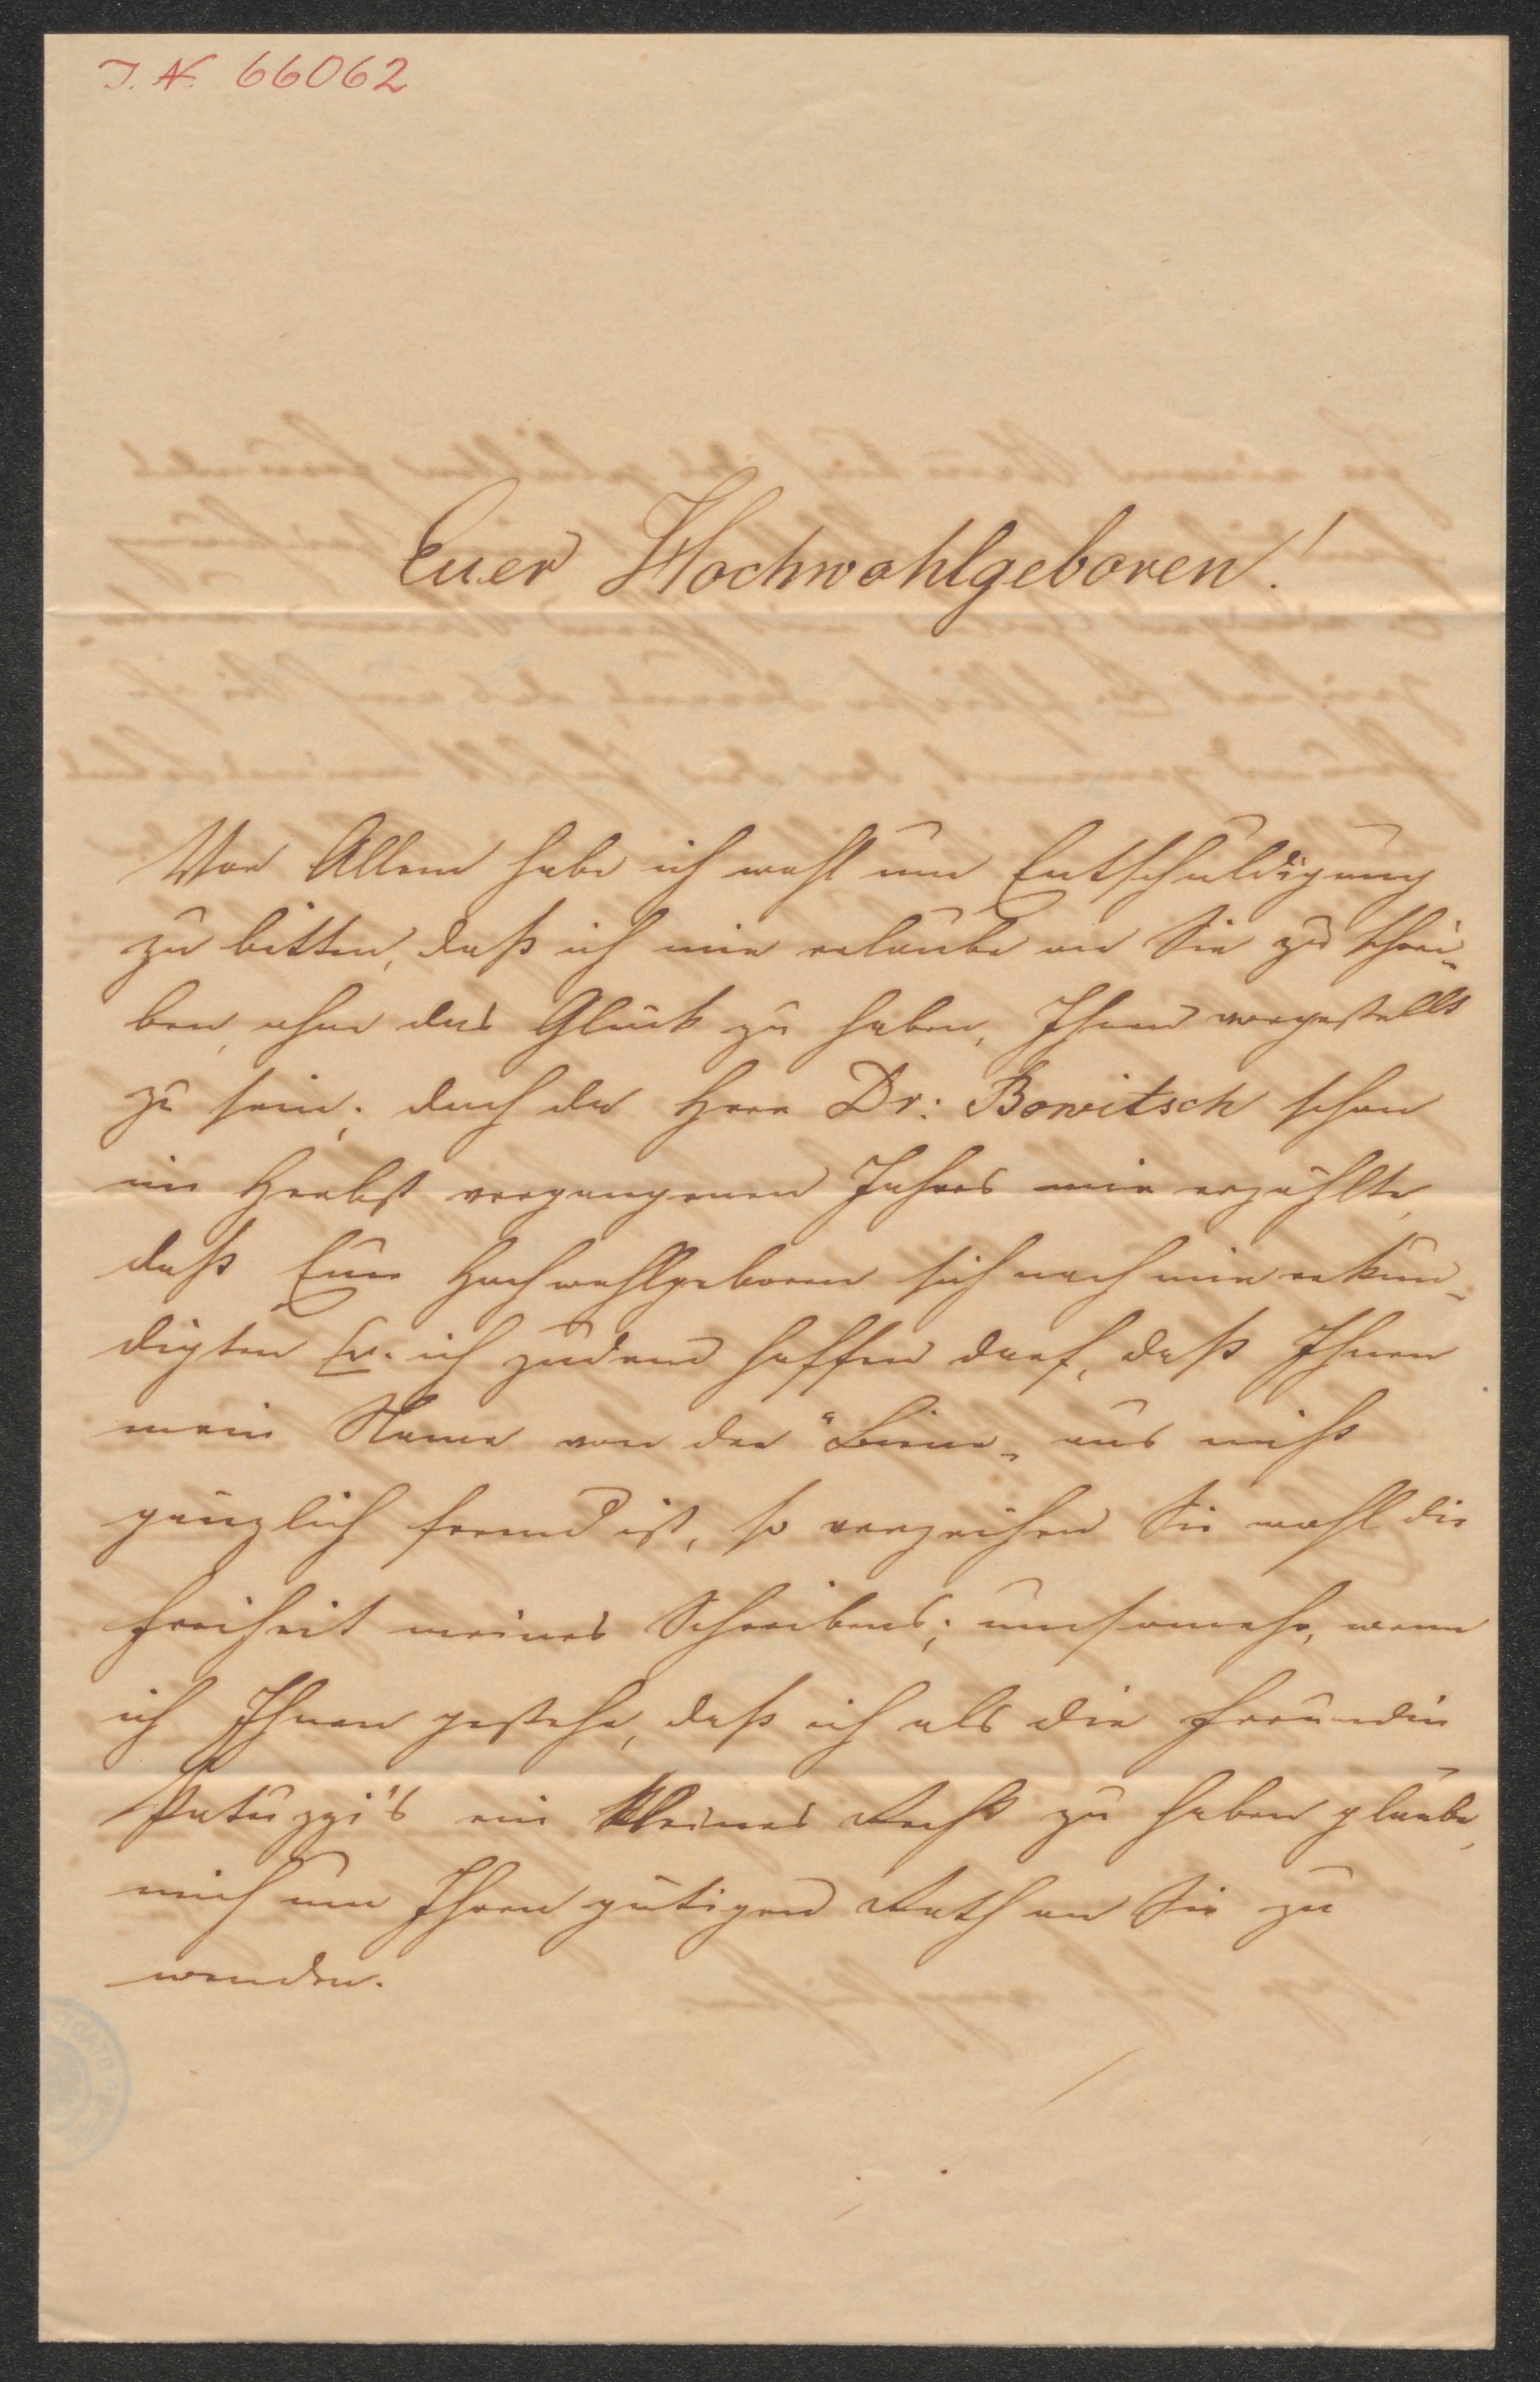 I. N. 66062
Euer Hochwohlgeboren!
Vor Allem habe ich wohl um Entschuldigung
zu bitten, daß ich mir erlaube an Sie zu schrei-
ben, ohne das Glück zu haben, Ihnen vorgestellt
zu sein; doch da Herr Dr: Bowitsch schon
im Herbst vergangenen Jahres mir erzählte,
daß Euer Hochwohlgeboren sich nach mir erkun-
digten u. ich zudem hoffen darf, daß Ihnen
mein Name von der "Biene" aus nicht
gänzlich fremd ist, so verzeihen Sie wohl die
Freiheit meines Schreibens; umsomehr, wenn
ich Ihnen gestehe, daß ich als die Freundin
Patuzzi's ein kleines Recht zu haben glaube,
mich um Ihren gütigen Rath an Sie zu
wenden.